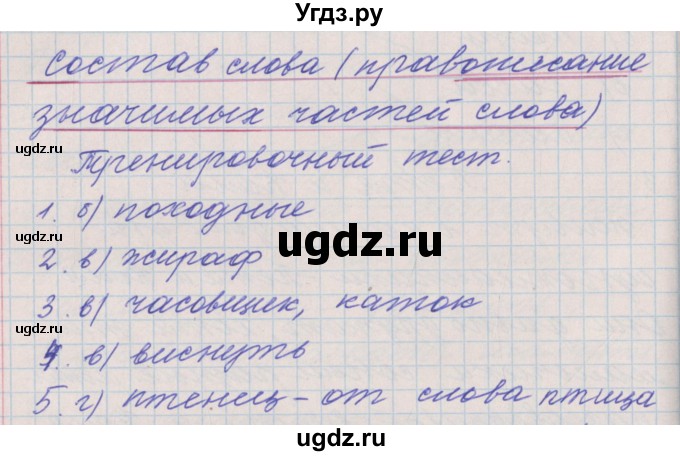 Угдз.ру
Состав слова (правописание
значимых частей слова)
Тренировочный тест.
1. б) походные
2. в) жираф
3. в) часовщик, каток
4. в) виснуть
5. г) птенец - от слова птица
ugdz.ru
ugdz.ru
ugdz.ru
ugdz.ru
ugdz.ru
ugdz.ru
ugdz.ru
ugdz.ru
ugdz.ru